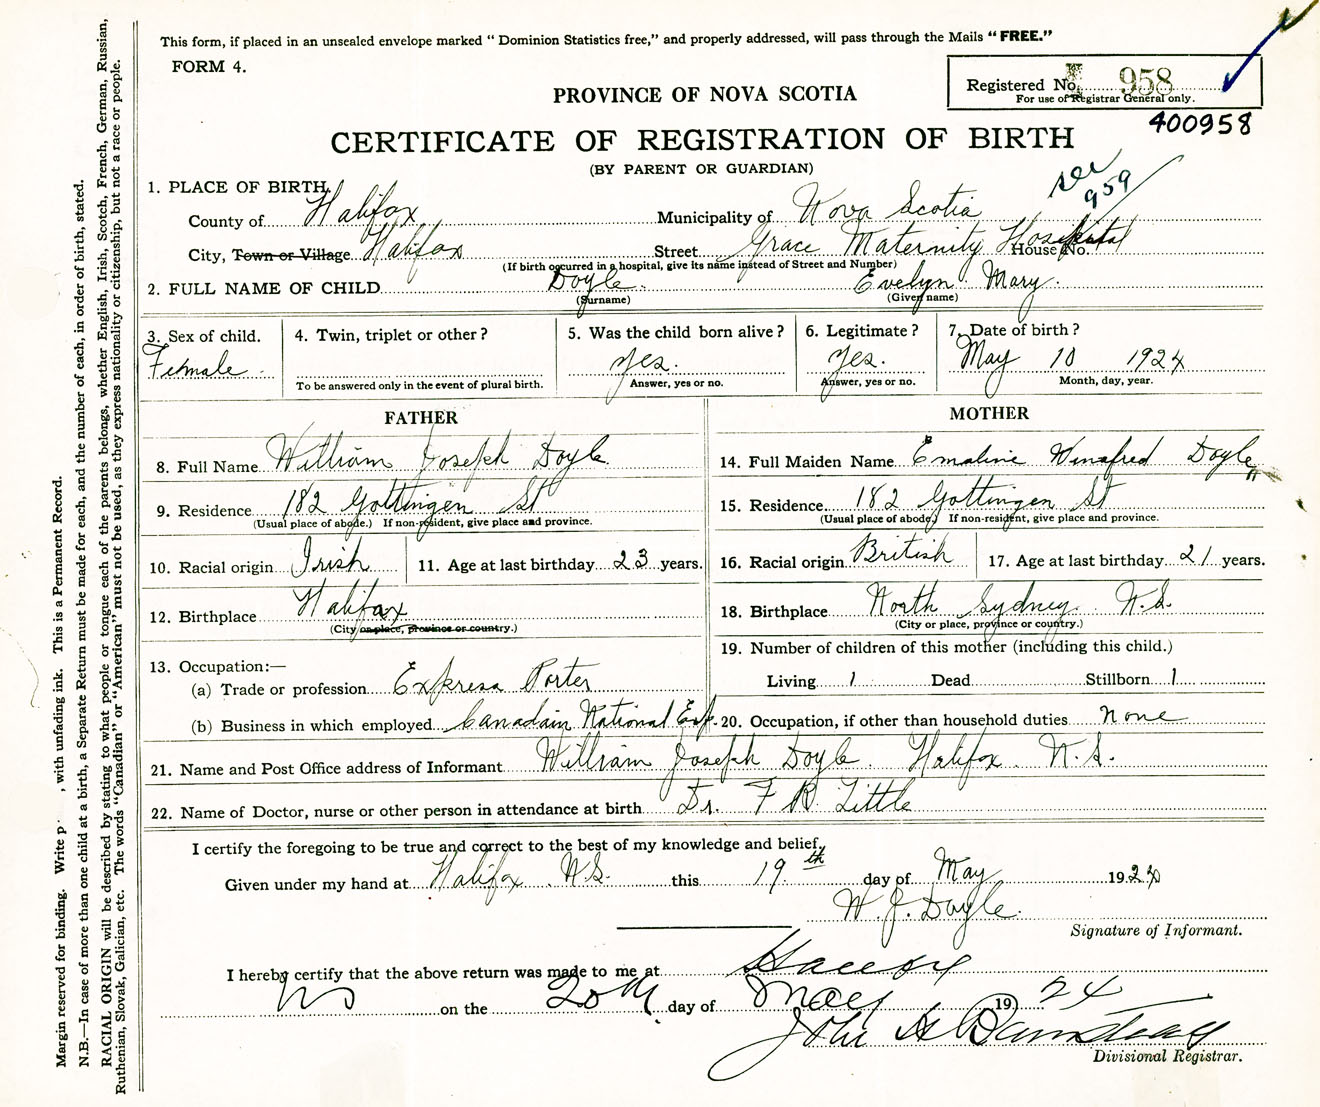 This form, if placed in an unsealed envelope marked “ Dominion Statistics free,” and properly addressed, will pass through the Mails “ FREE.”
FORM 4.
Registered No. 958
For use of Registrar General only.
400958
PROVINCE OF NOVA SCOTIA
CERTIFICATE OF REGISTRATION OF BIRTH
(BY PARENT OR GUARDIAN)
see 959
1. PLACE OF BIRTH.
County of Halifax Municipality of Nova Scotia
City, Town or Village Halifax Street Grace Maternity Hospital House No.
(If birth occurred in a hospital, give its name instead of Street and Number)
2. FULL NAME OF CHILD Doyle. Evelyn Mary.
(Surname) (Given name)
3. Sex of child. 4. Twin, triplet or other ? 5. Was the child born alive ? 6. Legitimate ? 7. Date of birth ?
Female yes. Yes. May 10 1924
To be answered only in the event of plural birth. Answer, yes or no. Answer, yes or no. Month, day, year.
FATHER MOTHER
8. Full Name William Joseph Doyle. 14. Full Maiden Name Emaline Winafred Doyle
9. Residence 182 Gottingen St 15. Residence 182 Gottingen St
(Usual place of abode.) If non-resident, give place and province. (Usual place of abode.) If non-resident, give place and province.
10. Racial origin Irish 11. Age at last birthday 23 years. 16. Racial origin British 17. Age at last birthday 21 years.
12. Birthplace Halifax 18. Birthplace North Sydney N.S.
(City or place, province or country.) (City or place, province or country.)
19. Number of children of this mother (including this child.)
13. Occupation:—
(a) Trade or profession Express Porter Living 1 Dead Stillborn 1
(b) Business in which employed Canadain National Exp. 20. Occupation, if other than household duties None
21. Name and Post Office address of Informant William Joseph Doyle. Halifax N.S.
22. Name of Doctor, nurse or other person in attendance at birth Dr. F R. Little
I certify the foregoing to be true and correct to the best of my knowledge and belief.
Given under my hand at Halifax. N.S. this 19th day of May 1924
W. J. Doyle.
Signature of Informant.
I hereby certify that the above return was made to me at Halifax
NS on the 20th day of May 1924
John A Barnstead
Divisional Registrar.
Margin reserved for binding. Write p , with unfading ink. This is a Permanent Record.
N.B.—In case of more than one child at a birth, a Separate Return must be made for each, and the number of each, in order of birth, stated.
RACIAL ORIGIN will be described by stating to what people or tongue each of the parents belongs, whether English, Irish, Scotch, French, German, Russian,
Ruthenian, Slovak, Galician, etc. The words “Canadian” or “American” must not be used, as they express nationality or citizenship, but not a race or people.